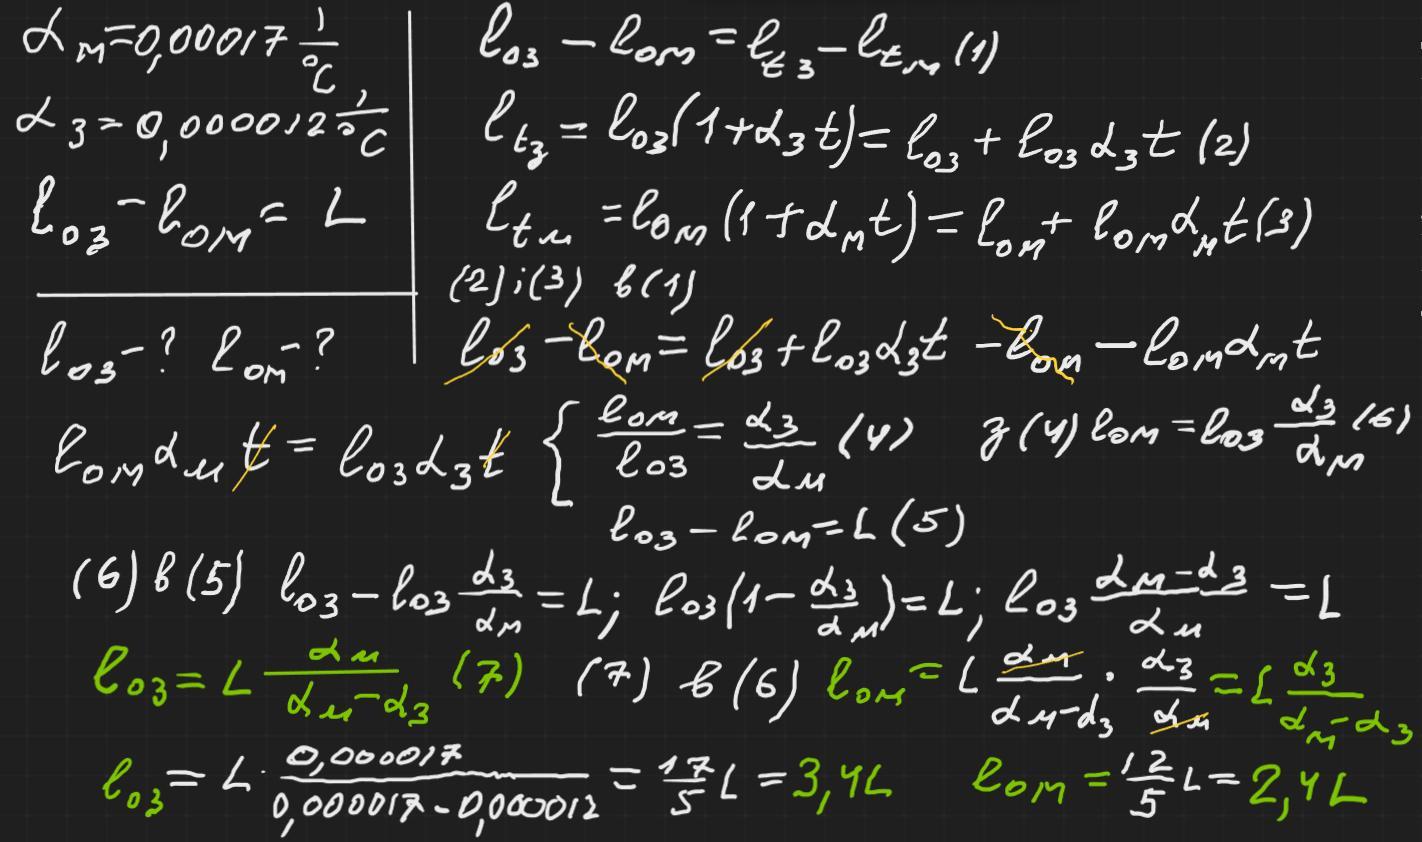 α м = 0,00017 1/°C
α з = 0,000012 1/°C
l₀з - l₀м = L
l₀з - ? l₀м - ?
l₀з - l₀м = l_tз - l_tм (1)
l_tз = l₀з(1+α з t) = l₀з + l₀з α з t (2)
l_tм = l₀м (1+α м t) = l₀м + l₀м α м t (3)
(2) i (3) в (1)
l₀з - l₀м = l₀з + l₀з α з t - l₀м - l₀м α м t
l₀м α м t = l₀з α з t { l₀м/l₀з = α з/α м (4) з (4) l₀м = l₀з α з/α м (6)
l₀з - l₀м = L (5)
(6) в (5) l₀з - l₀з α з/α м = L; l₀з (1 - α з/α м) = L; l₀з (α м - α з)/α м = L
l₀з = L α м/(α м - α з) (7) (7) в (6) l₀м = L α м/(α м - α з) · α з/α м = L α з/(α м - α з)
l₀з = L · 0,000017/(0,000017 - 0,000012) = 17/5 L = 3,4L l₀м = 12/5 L = 2,4L